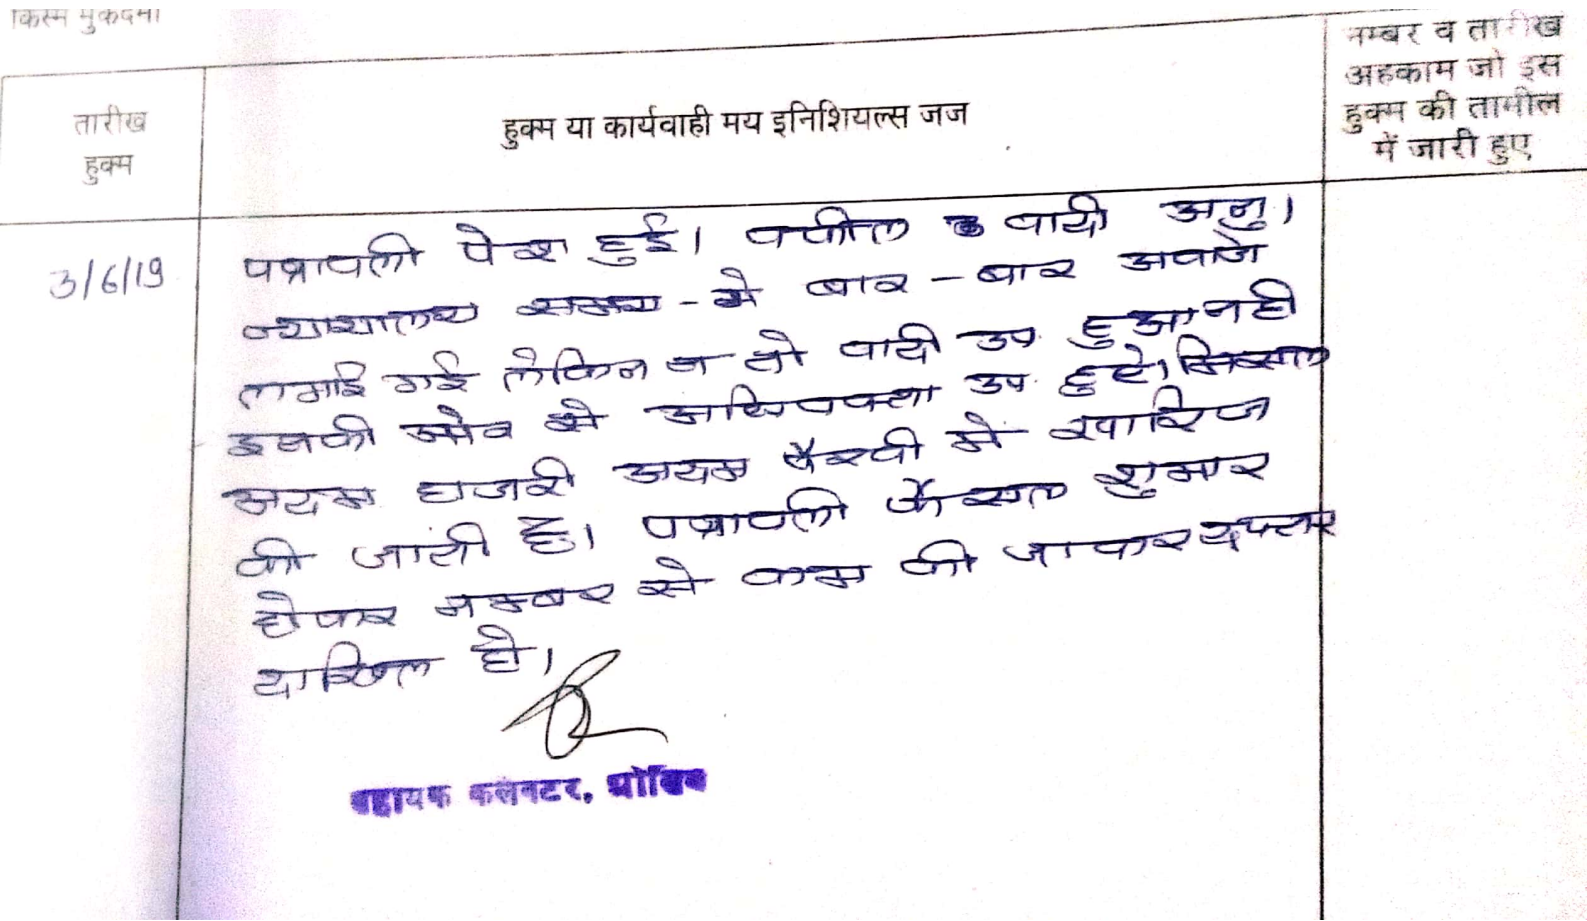 किस्म मुकदमा
तारीख
हुक्म
हुक्म या कार्यवाही मय इनिशियल्स जज
नम्बर व तारीख
अहकाम जो इस
हुक्म की तामील
में जारी हुए
3/6/19
पत्रावली पेश हुई। वकील व वादी अनु।
न्यायालय समय - मे बार - बार अवाजे
लगाई गई लेकिन न तो वादी उप हुआ नही
इनकी ओर से अधिवक्ता उप हुऐ।
अदम हाजरी अदम पैरवी मे खारिज
की जाती है। पत्रावली फैसल शुमार
होकर नम्बर से कम की जाकर दफ्तर
दाखिल हो।
सहायक कलक्टर,